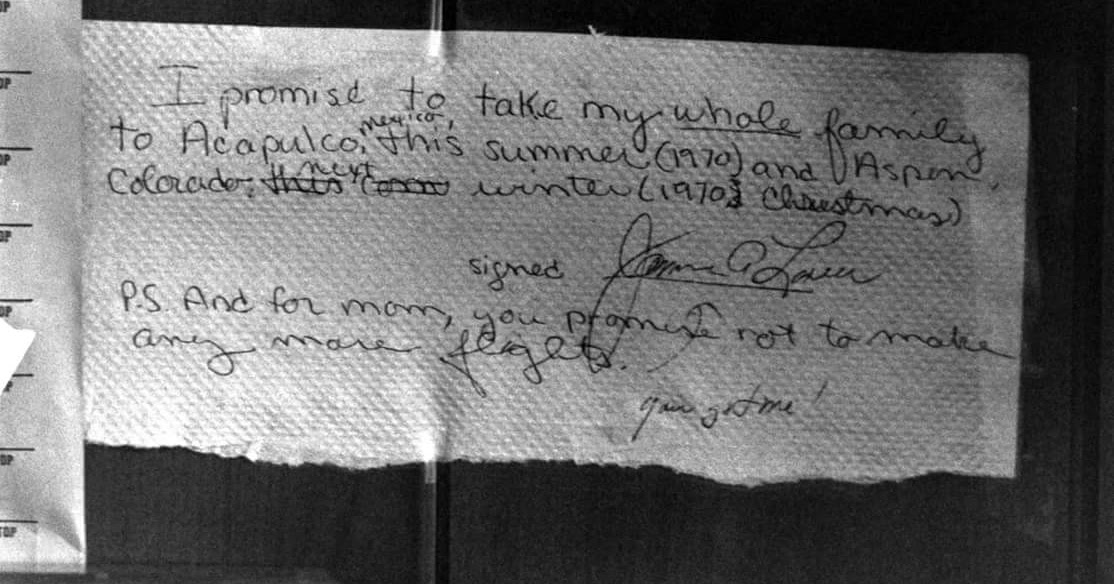 I promise to take my whole family
to Acapulco, mexico, this summer (1970) and Aspen,
Colorado, next winter (1970 Christmas)
signed James A Lovell
P.S. And for mom, you promise not to make
any more flights.
you got me!
TOP